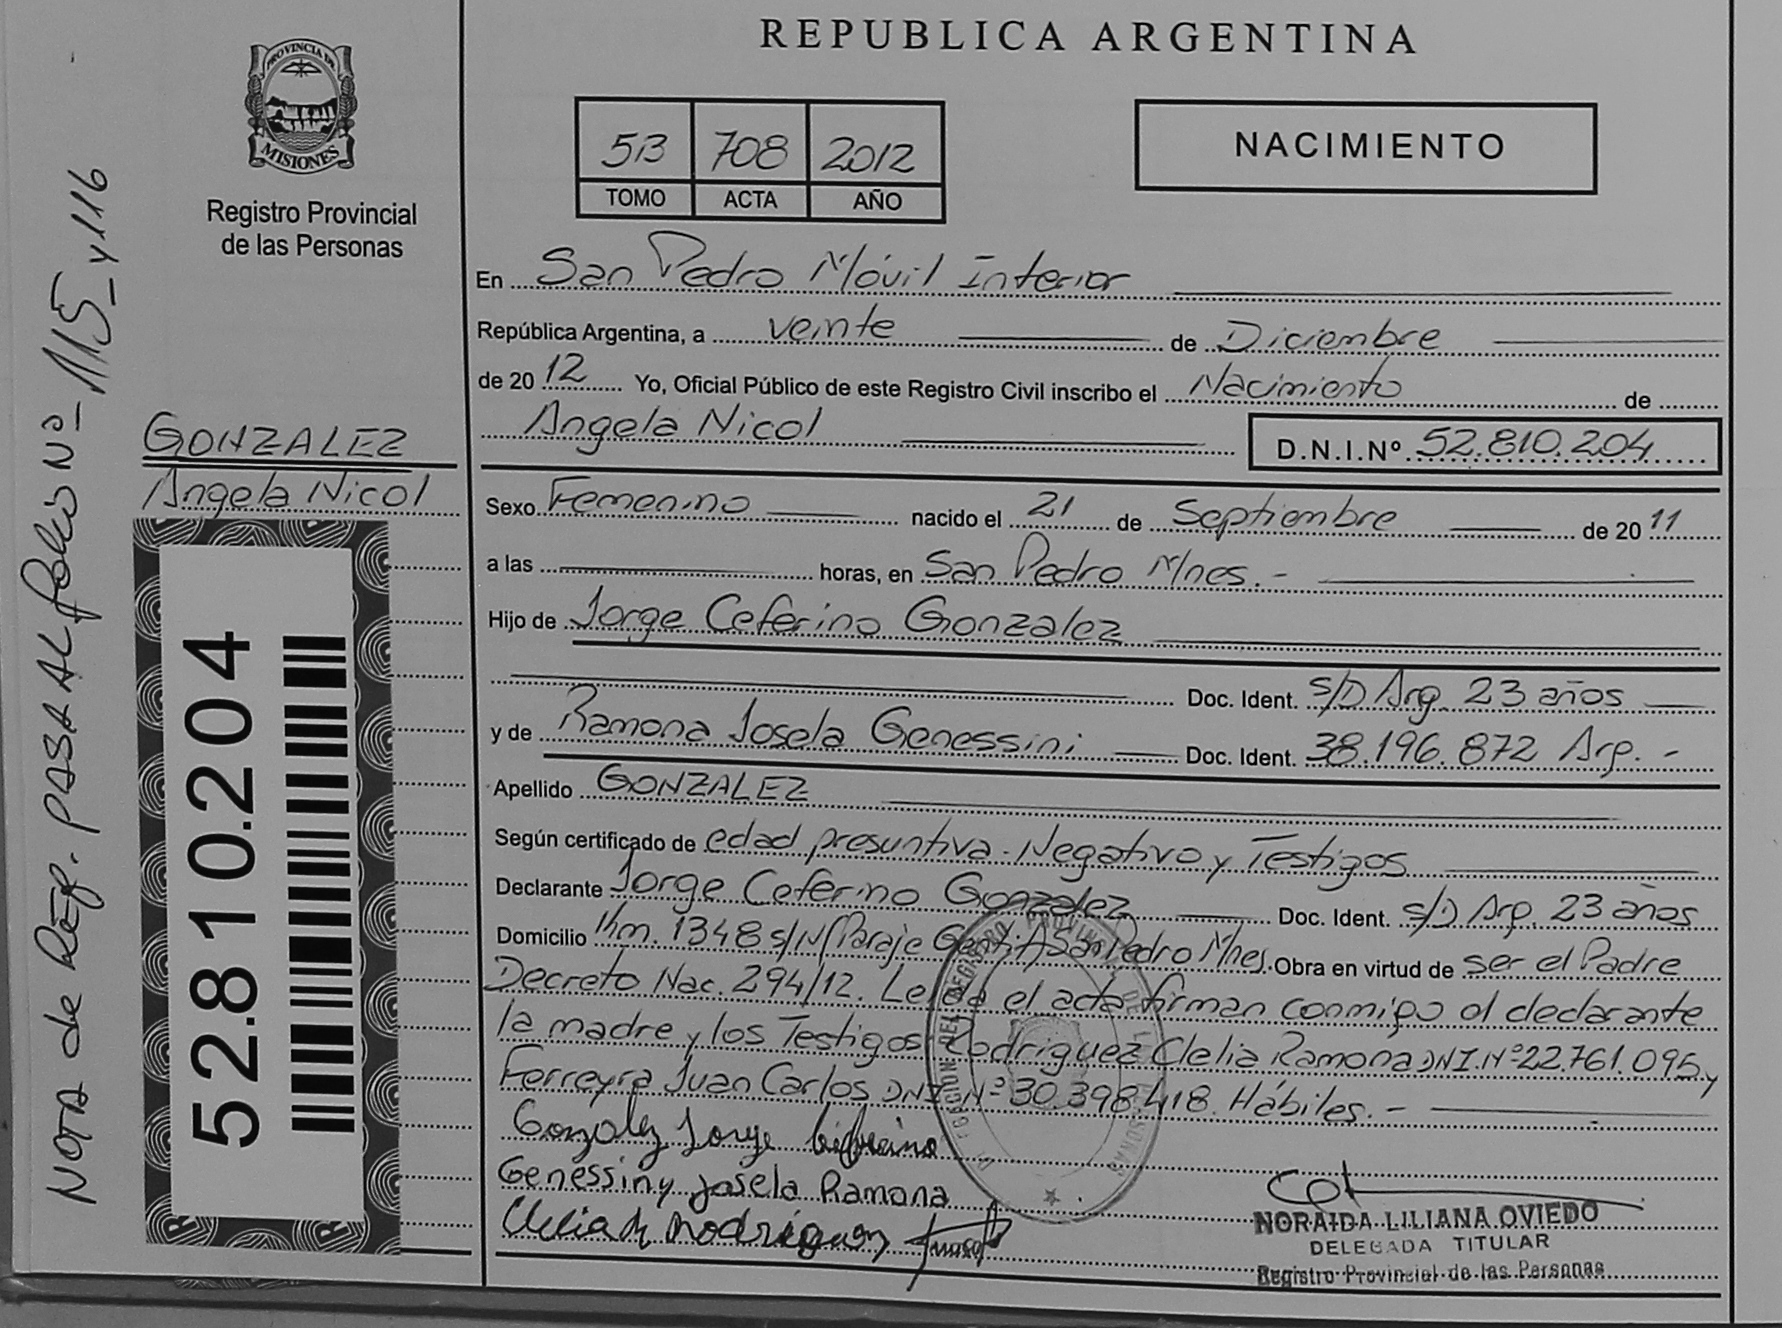 REPUBLICA ARGENTINA
PROVINCIA DE
MISIONES
Registro Provincial
de las Personas
513 708 2012
TOMO ACTA AÑO
NACIMIENTO
NOTA de Ref. PASA AL folio Nº 115 y 116
GONZALEZ
Angela Nicol
52.810.204
En San Pedro Móvil Interior
República Argentina, a veinte de Diciembre
de 2012 Yo, Oficial Público de este Registro Civil inscribo el Nacimiento de
Angela Nicol D.N.I.Nº 52.810.204
Sexo Femenino nacido el 21 de Septiembre de 2011
a las horas, en San Pedro Mnes.-
Hijo de Jorge Ceferino Gonzalez
Doc. Ident. s/D Arg. 23 años
y de Ramona Josela Genessini Doc. Ident. 38.196.872 Arg.-
Apellido GONZALEZ
Según certificado de edad presuntiva-Negativo y Testigos
Declarante Jorge Ceferino Gonzalez Doc. Ident. s/D Arg. 23 años
Domicilio Km. 1348 s/N Paraje San Pedro Mnes. Obra en virtud de ser el Padre
Decreto Nac. 294/12. Leída el acta firman conmigo el declarante
la madre y los Testigos Rodriguez Clelia Ramona DNI.Nº22.761.095 y
Ferreyra Juan Carlos DNI Nº 30.398.418. Hábiles.-
Gonzalez Jorge
Genessiny Josela Ramona
Clelia R Rodriguez
NORAIDA LILIANA OVIEDO
DELEGADA TITULAR
Registro Provincial de las Personas